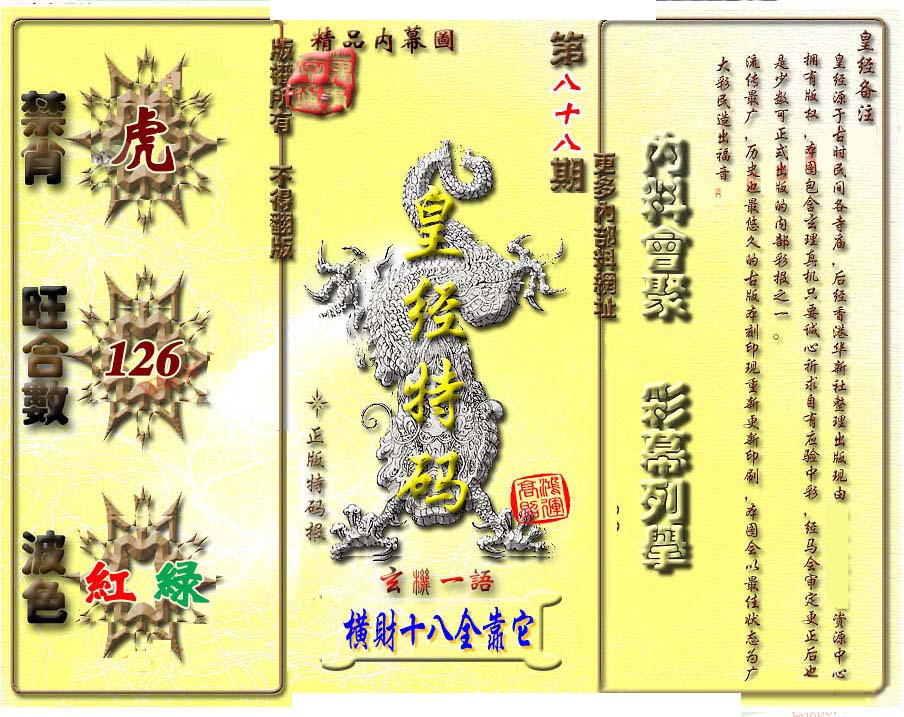 皇经备注
皇经源于古时民间各寺庙，后经香港华新社整理出版现由
资源中心
拥有版权，本图包含玄理真机只要诚心祈求自有应验中彩，经马会审定更正后也
是少数可正式出版的内部彩报之一。
流传最广，历史也最悠久的古版本刻印现重新更新印刷，本图会以最佳状态为广
大彩民造出福音
内料會聚
彩幕列舉
更多內部料網址
第八十八期
精品内幕圖
版權所有 不得翻版
皇经特码
正版特码报
鴻運高照
玄機一語
橫財十八全靠它
禁肖
虎
旺合數
126
波色
紅 綠